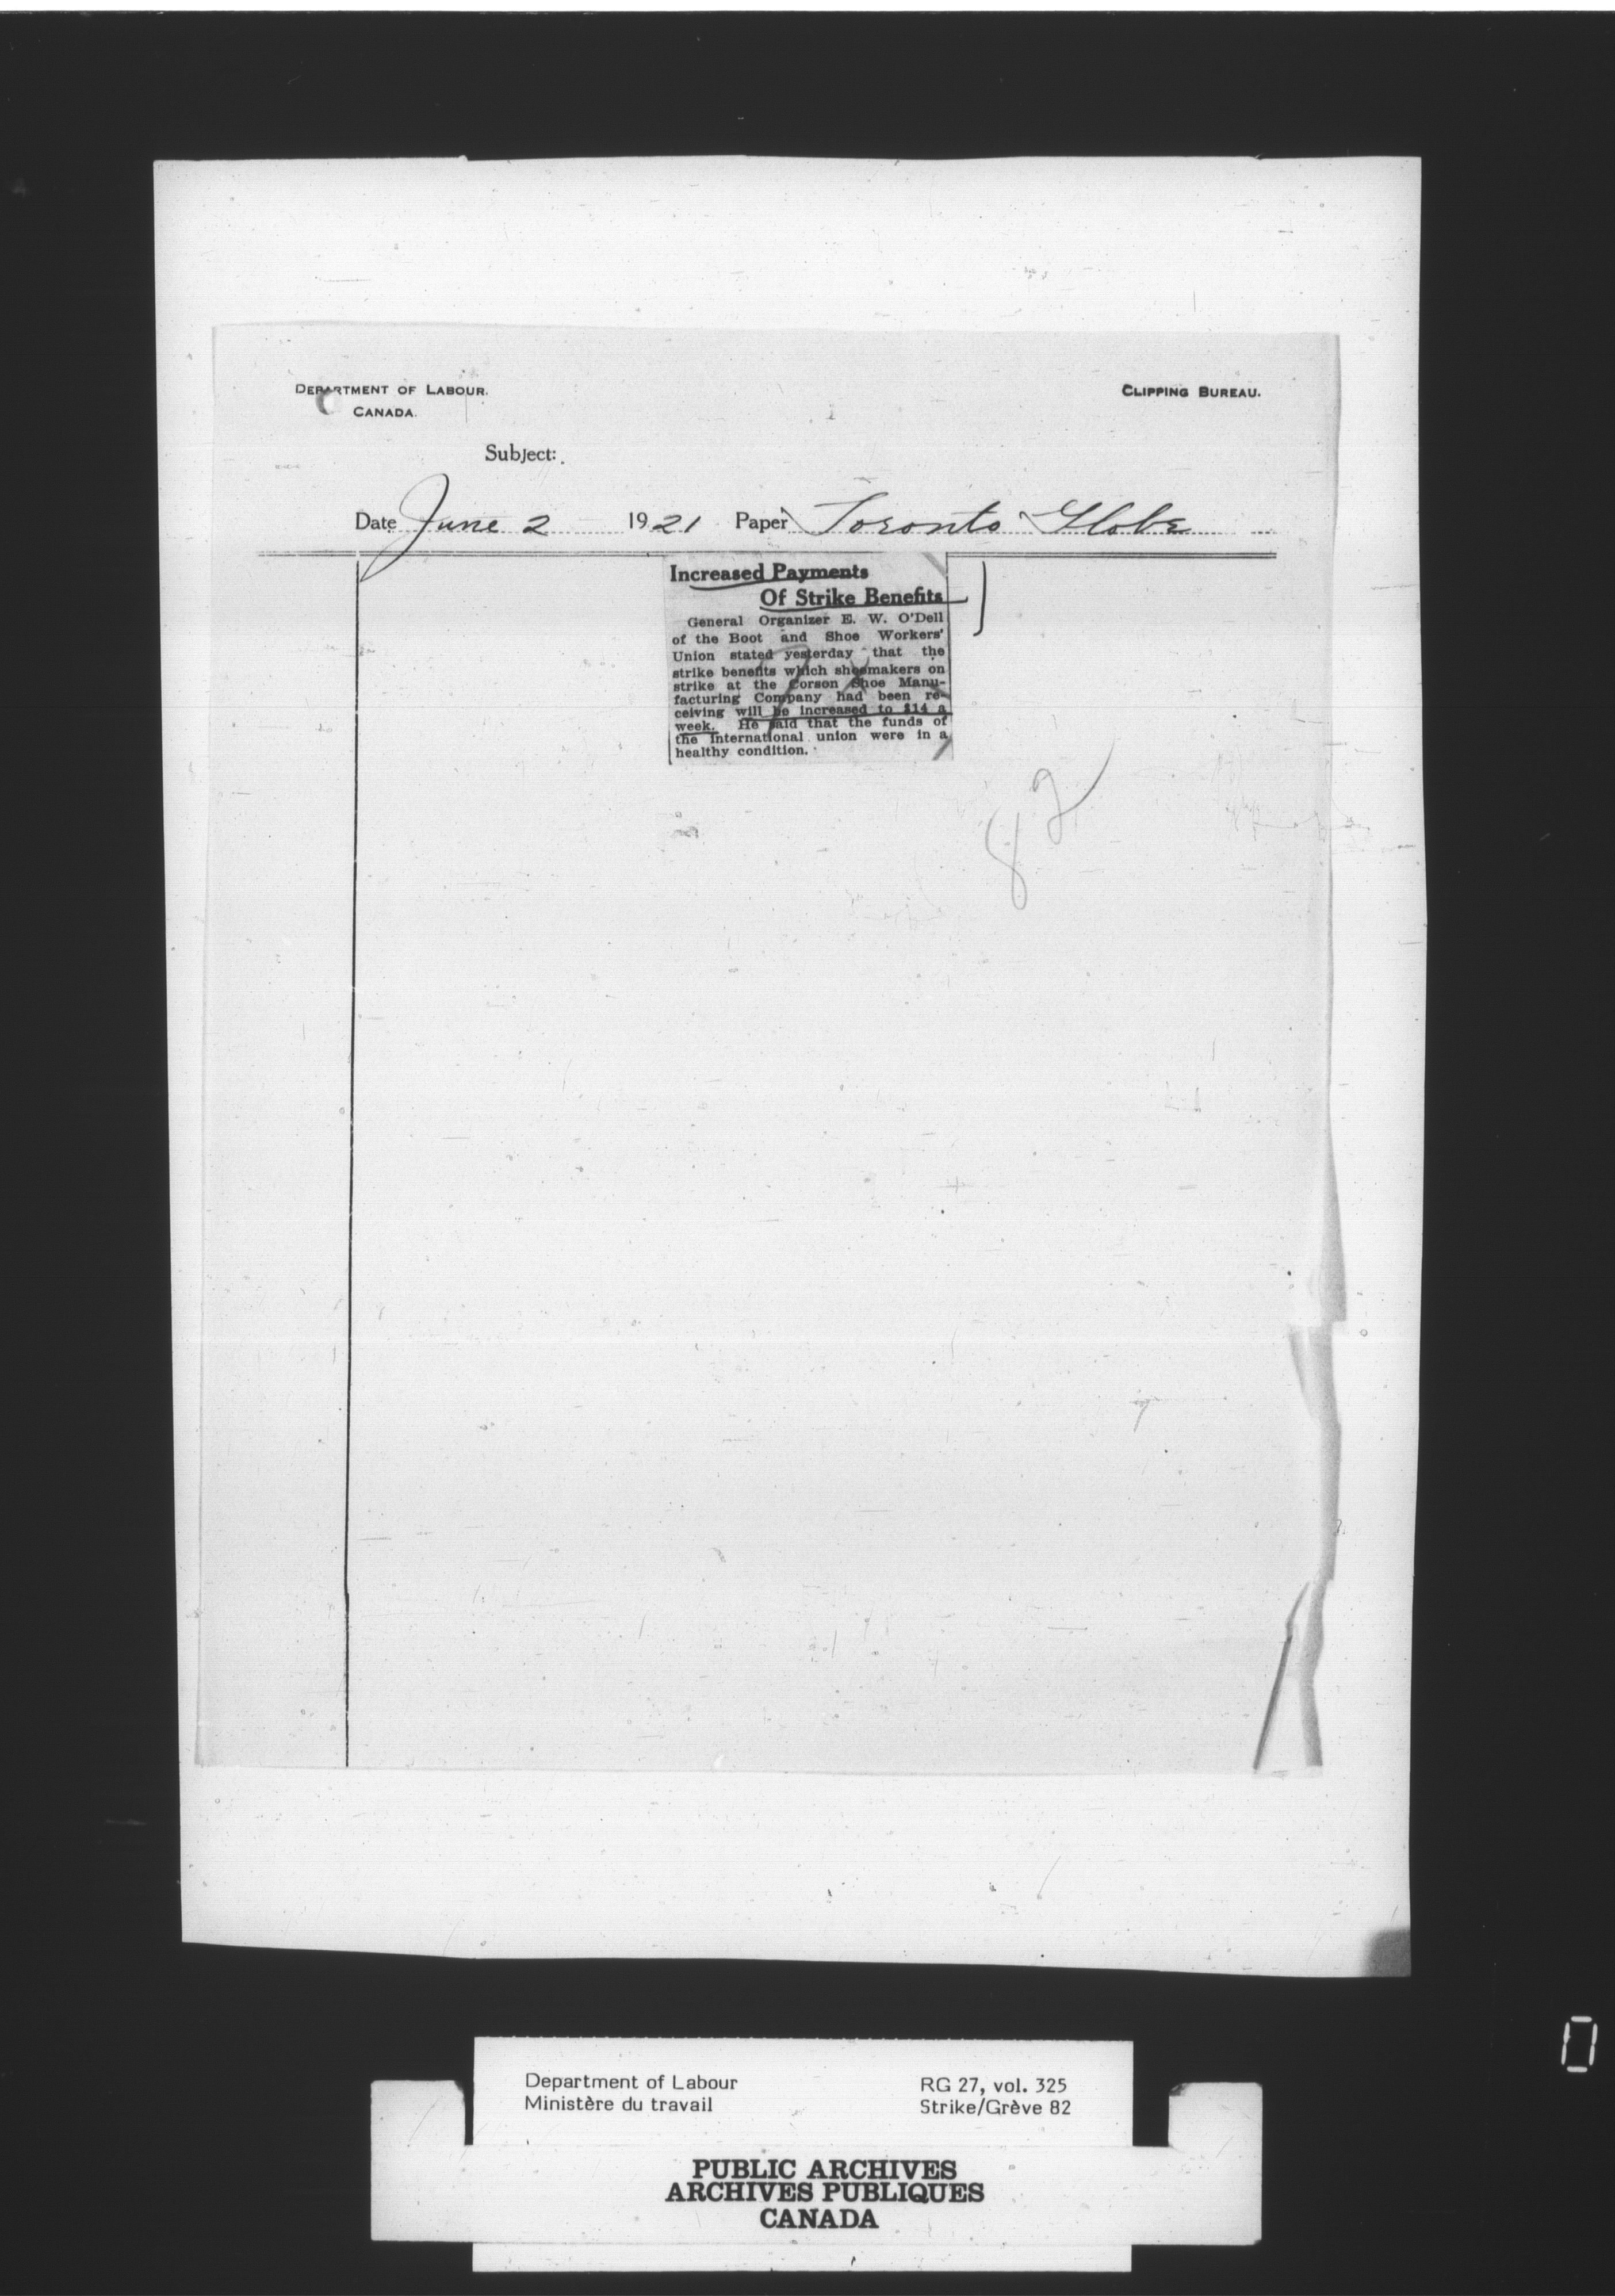 DEPARTMENT OF LABOUR.
CANADA.
CLIPPING BUREAU.
Subject:
Date June 2 1921 Paper Toronto Globe
Increased Payments
Of Strike Benefits
General Organizer E. W. O'Dell
of the Boot and Shoe Workers'
Union stated yesterday that the
strike benefits which shoemakers on
strike at the Corson Shoe Manu-
facturing Company had been re-
ceiving will be increased to $14 a
week. He said that the funds of
the International union were in a
healthy condition.
82
Department of Labour
Ministère du travail
RG 27, vol. 325
Strike/Grève 82
PUBLIC ARCHIVES
ARCHIVES PUBLIQUES
CANADA